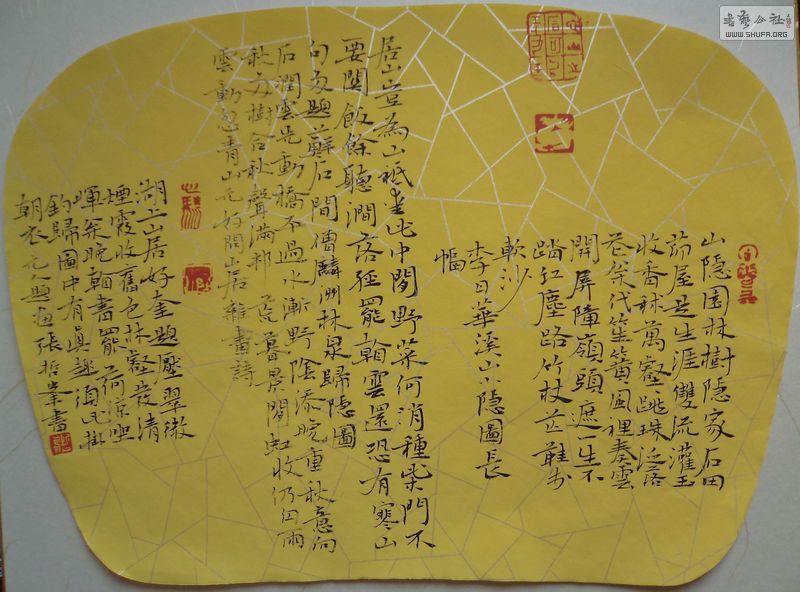 山隱園林樹隱家石田
茆屋是生涯雙流灌玉
收香秫萬壑跳珠泛落
花矣代笙簧風裡奏雲
開屏障嶺頭遮一生不
踏紅塵路竹杖芒鞋步
軟沙
李日華溪山小隱圖長
幅
居山豈為山祗坐此中間野菜何消種柴門不
要關飯餘聽澗落經罷翰雲還恐有寒山
句多題蘚石間僧麟洲林泉歸隱圖
石澗雲先動橋不過水漸野陰添晚重秋意向
秋方樹合秋聲滿邨荒暮景閒虹收仍白雨
雲動忽青山 閒山居雜畫詩
湖上山居好奎題壓翠微
煙霞收舊色林壑發清
暉架晚翰書罷荷涼
釣歸圖中有真趣須此掛
朝衣元人題畫張哲峯書
書藝公社
WWW.SHUFA.ORG